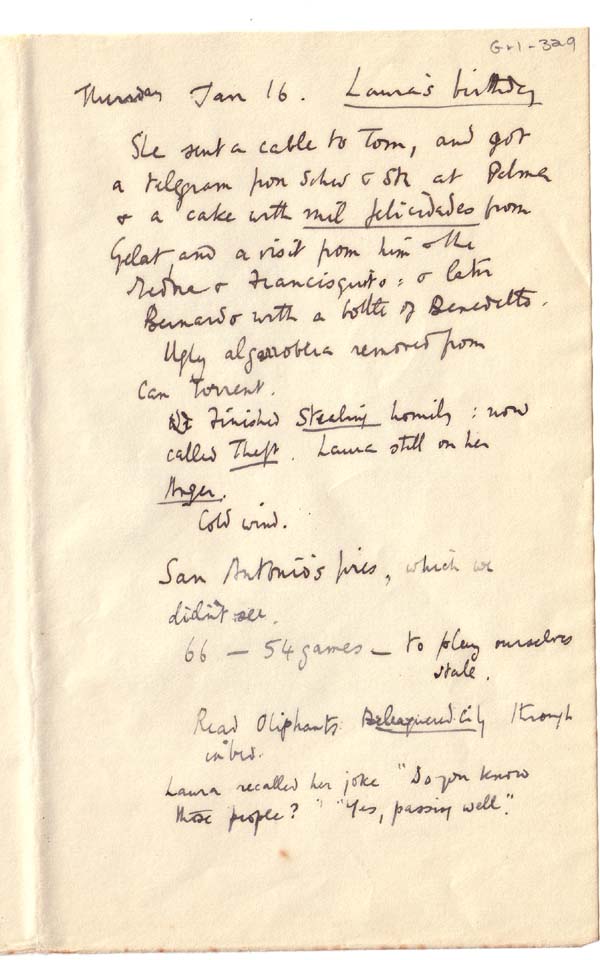 G-1-329
Thursday Jan 16. Laura's birthday
She sent a cable to Tom, and got
a telegram from & at Palma
& a cake with mil felicidades from
Gelat, and a visit from him & the
Medora & Francisquito: & later
Bernardo with a bottle of Benedetto.
Ugly algarrobera removed from
Can Torrent.
Finished Stealing homily: now
called Theft. Laura still on her
Anger.
Cold wind.
San Antonio's fires, which we
didn't see.
66 — 54 games — to play ourselves
stale.
Read Oliphants Beleaguered City through
in bed.
Laura recalled her joke "Do you know
those people?" "Yes, passing well."